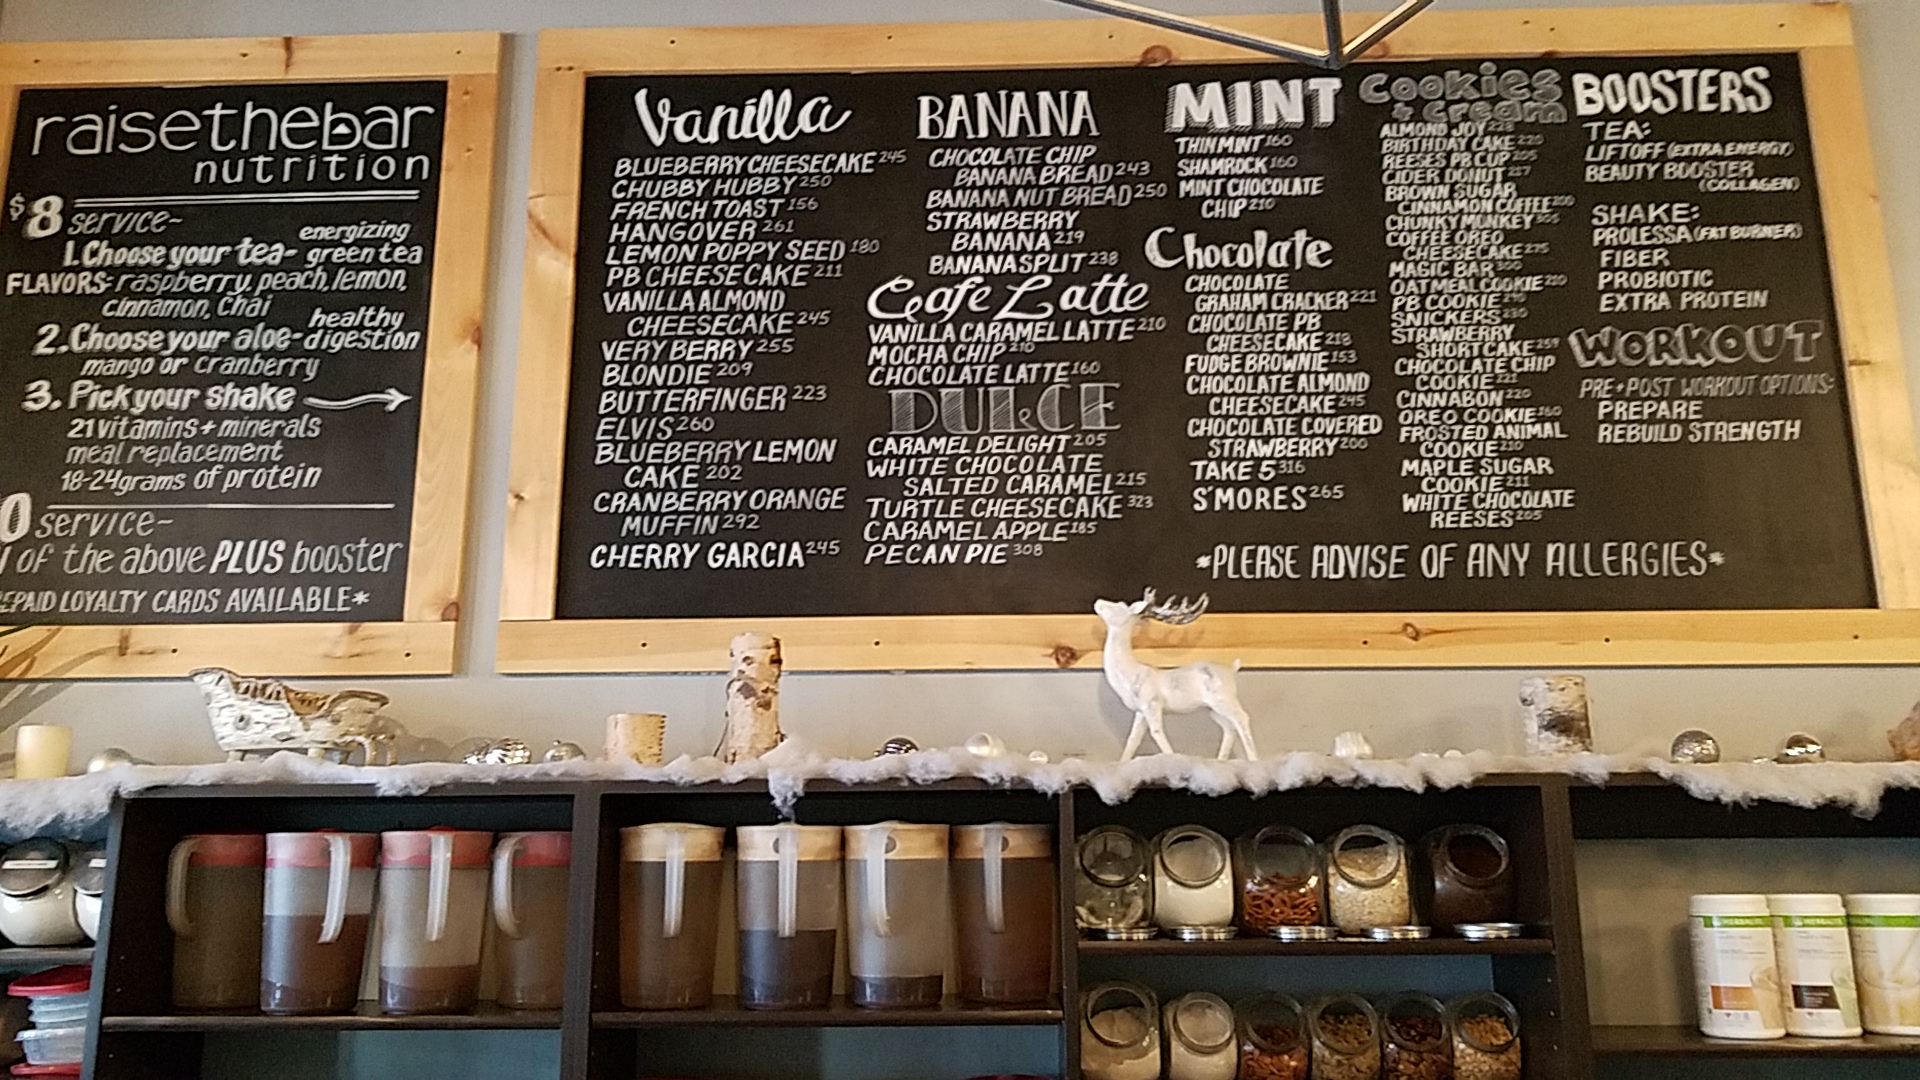 raisethebar
nutrition
$8 service~
1. Choose your tea- energizing green tea
FLAVORS: raspberry, peach, lemon,
cinnamon, Chai
2. Choose your aloe- healthy digestion
mango or cranberry
3. Pick your shake
21 vitamins + minerals
meal replacement
18-24grams of protein
0 service~
of the above PLUS booster
EPAID LOYALTY CARDS AVAILABLE*
Vanilla
BLUEBERRY CHEESECAKE 245
CHUBBY HUBBY 250
FRENCH TOAST 156
HANGOVER 261
LEMON POPPY SEED 180
PB CHEESECAKE 211
VANILLA ALMOND
CHEESECAKE 245
VERY BERRY 255
BLONDIE 209
BUTTERFINGER 223
ELVIS 260
BLUEBERRY LEMON
CAKE 202
CRANBERRY ORANGE
MUFFIN 292
CHERRY GARCIA 245
BANANA
CHOCOLATE CHIP
BANANA BREAD 243
BANANA NUT BREAD 250
STRAWBERRY
BANANA 219
BANANA SPLIT 238
Cafe Latte
VANILLA CARAMEL LATTE 210
MOCHA CHIP 210
CHOCOLATE LATTE 160
DULCE
CARAMEL DELIGHT 205
WHITE CHOCOLATE
SALTED CARAMEL 215
TURTLE CHEESECAKE 323
CARAMEL APPLE 185
PECAN PIE 308
MINT
THIN MINT 160
SHAMROCK 160
MINT CHOCOLATE
CHIP 210
Chocolate
CHOCOLATE
GRAHAM CRACKER 221
CHOCOLATE PB
CHEESECAKE 218
FUDGE BROWNIE 153
CHOCOLATE ALMOND
CHEESECAKE 245
CHOCOLATE COVERED
STRAWBERRY 200
TAKE 5 316
S'MORES 265
Cookies
+ Cream
ALMOND JOY
BIRTHDAY CAKE 220
REESES PB CUP
CIDER DONUT
BROWN SUGAR
CINNAMON COFFEE 200
CHUNKY MONKEY
COFFEE OREO
CHEESECAKE 275
MAGIC BAR
OATMEAL COOKIE 210
PB COOKIE
SNICKERS 230
STRAWBERRY
SHORTCAKE
CHOCOLATE CHIP
COOKIE
CINNABON 220
OREO COOKIE 160
FROSTED ANIMAL
COOKIE 210
MAPLE SUGAR
COOKIE 211
WHITE CHOCOLATE
REESES 205
BOOSTERS
TEA:
LIFTOFF (EXTRA ENERGY)
BEAUTY BOOSTER
(COLLAGEN)
SHAKE:
PROLESSA (FAT BURNER)
FIBER
PROBIOTIC
EXTRA PROTEIN
WORKOUT
PRE + POST WORKOUT OPTIONS:
PREPARE
REBUILD STRENGTH
*PLEASE ADVISE OF ANY ALLERGIES*
HERBALIFE
HERBALIFE